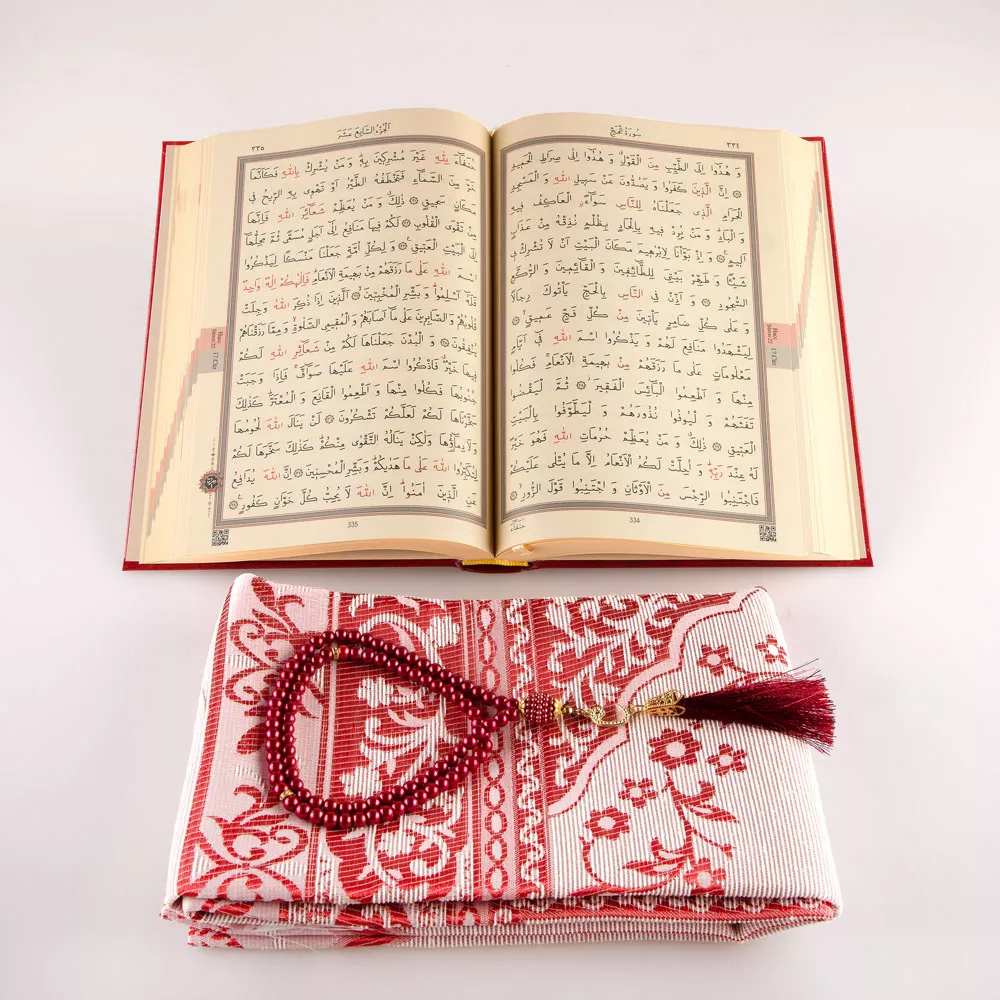 سُورَةُ الْحَجِّ
٣٣٤
وَ هُدُوا اِلَى الطَّيِّبِ مِنَ الْقَوْلِۚ وَ هُدُوا اِلٰى صِرَاطِ الْحَمِيدِ
۞ اِنَّ الَّذِينَ كَفَرُوا وَ يَصُدُّونَ عَنْ سَبِيلِ اللّٰهِ وَ الْمَسْجِدِ
الْحَرَامِ الَّذِي جَعَلْنَاهُ لِلنَّاسِ سَوَٓاءً الْعَاكِفُ فِيهِ
وَ الْبَادِۜ وَ مَنْ يُرِدْ فِيهِ بِاِلْحَادٍ بِظُلْمٍ نُذِقْهُ مِنْ عَذَابٍ
اَلِيمٍ ۞ وَ اِذْ بَوَّأْنَا لِاِبْرٰهِيمَ مَكَانَ الْبَيْتِ اَنْ لَا تُشْرِكْ بِي
شَيْـًٔا وَ طَهِّرْ بَيْتِيَ لِلطَّٓائِفِينَ وَ الْقَٓائِمِينَ وَ الرُّكَّعِ
السُّجُودِ ۞ وَ اَذِّنْ فِي النَّاسِ بِالْحَجِّ يَأْتُوكَ رِجَالًا
وَ عَلٰى كُلِّ ضَامِرٍ يَأْتِينَ مِنْ كُلِّ فَجٍّ عَمِيقٍۙ ۞
لِيَشْهَدُوا مَنَافِعَ لَهُمْ وَ يَذْكُرُوا اسْمَ اللّٰهِ فِٓي اَيَّامٍ
مَعْلُومَاتٍ عَلٰى مَا رَزَقَهُمْ مِنْ بَهِيمَةِ الْاَنْعَامِۚ فَكُلُوا
مِنْهَا وَ اَطْعِمُوا الْبَٓائِسَ الْفَقِيرَۘ ۞ ثُمَّ لْيَقْضُوا
تَفَثَهُمْ وَ لْيُوفُوا نُذُورَهُمْ وَ لْيَطَّوَّفُوا بِالْبَيْتِ
الْعَتِيقِ ۞ ذٰلِكَ وَ مَنْ يُعَظِّمْ حُرُمَاتِ اللّٰهِ فَهُوَ خَيْرٌ
لَهُ عِنْدَ رَبِّهِۜ وَ اُحِلَّتْ لَكُمُ الْاَنْعَامُ اِلَّا مَا يُتْلٰى عَلَيْكُمْ
فَاجْتَنِبُوا الرِّجْسَ مِنَ الْاَوْثَانِ وَ اجْتَنِبُوا قَوْلَ الزُّورِۙ ۞
حُنَفَٓاءَ
334
Hacc
Suresi 22
17.Cüz
اَلْجُزْءُ السَّابِعُ عَشَرَ
٣٣٥
حُنَفَٓاءَ لِلّٰهِ غَيْرَ مُشْرِكِينَ بِهِۜ وَ مَنْ يُشْرِكْ بِاللّٰهِ فَكَاَنَّمَا
خَرَّ مِنَ السَّمَٓاءِ فَتَخْطَفُهُ الطَّيْرُ اَوْ تَهْوِي بِهِ الرِّيحُ فِي
مَكَانٍ سَحِيقٍ ۞ ذٰلِكَ وَ مَنْ يُعَظِّمْ شَعَٓائِرَ اللّٰهِ فَاِنَّهَا
مِنْ تَقْوَى الْقُلُوبِ ۞ لَكُمْ فِيهَا مَنَافِعُ اِلٰٓى اَجَلٍ مُسَمًّى ثُمَّ مَحِلُّهَٓا
اِلَى الْبَيْتِ الْعَتِيقِ ۞ وَ لِكُلِّ اُمَّةٍ جَعَلْنَا مَنْسَكًا لِيَذْكُرُوا
اسْمَ اللّٰهِ عَلٰى مَا رَزَقَهُمْ مِنْ بَهِيمَةِ الْاَنْعَامِۜ فَاِلٰهُكُمْ اِلٰهٌ وَاحِدٌ
فَلَهُٓ اَسْلِمُواۜ وَ بَشِّرِ الْمُخْبِتِينَۙ ۞ اَلَّذِينَ اِذَا ذُكِرَ اللّٰهُ وَجِلَتْ
قُلُوبُهُمْ وَ الصَّابِرِينَ عَلٰى مَٓا اَصَابَهُمْ وَ الْمُقِيمِي الصَّلٰوةِۙ وَ مِمَّا رَزَقْنَاهُمْ
يُنْفِقُونَ ۞ وَ الْبُدْنَ جَعَلْنَاهَا لَكُمْ مِنْ شَعَٓائِرِ اللّٰهِ لَكُمْ
فِيهَا خَيْرٌۗ فَاذْكُرُوا اسْمَ اللّٰهِ عَلَيْهَا صَوَٓافَّۚ فَاِذَا وَجَبَتْ
جُنُوبُهَا فَكُلُوا مِنْهَا وَ اَطْعِمُوا الْقَانِعَ وَ الْمُعْتَرَّۜ كَذٰلِكَ
سَخَّرْنَاهَا لَكُمْ لَعَلَّكُمْ تَشْكُرُونَ ۞ لَنْ يَنَالَ اللّٰهَ لُحُومُهَا
وَ لَا دِمَٓاؤُ۬هَا وَلٰكِنْ يَنَالُهُ التَّقْوٰى مِنْكُمْۜ كَذٰلِكَ سَخَّرَهَا لَكُمْ
لِتُكَبِّرُوا اللّٰهَ عَلٰى مَا هَدٰيكُمْۜ وَ بَشِّرِ الْمُحْسِنِينَ ۞ اِنَّ اللّٰهَ يُدَافِعُ
عَنِ الَّذِينَ اٰمَنُواۜ اِنَّ اللّٰهَ لَا يُحِبُّ كُلَّ خَوَّانٍ كَفُورٍ ۞
335
Hacc
Suresi 22
17.Cüz